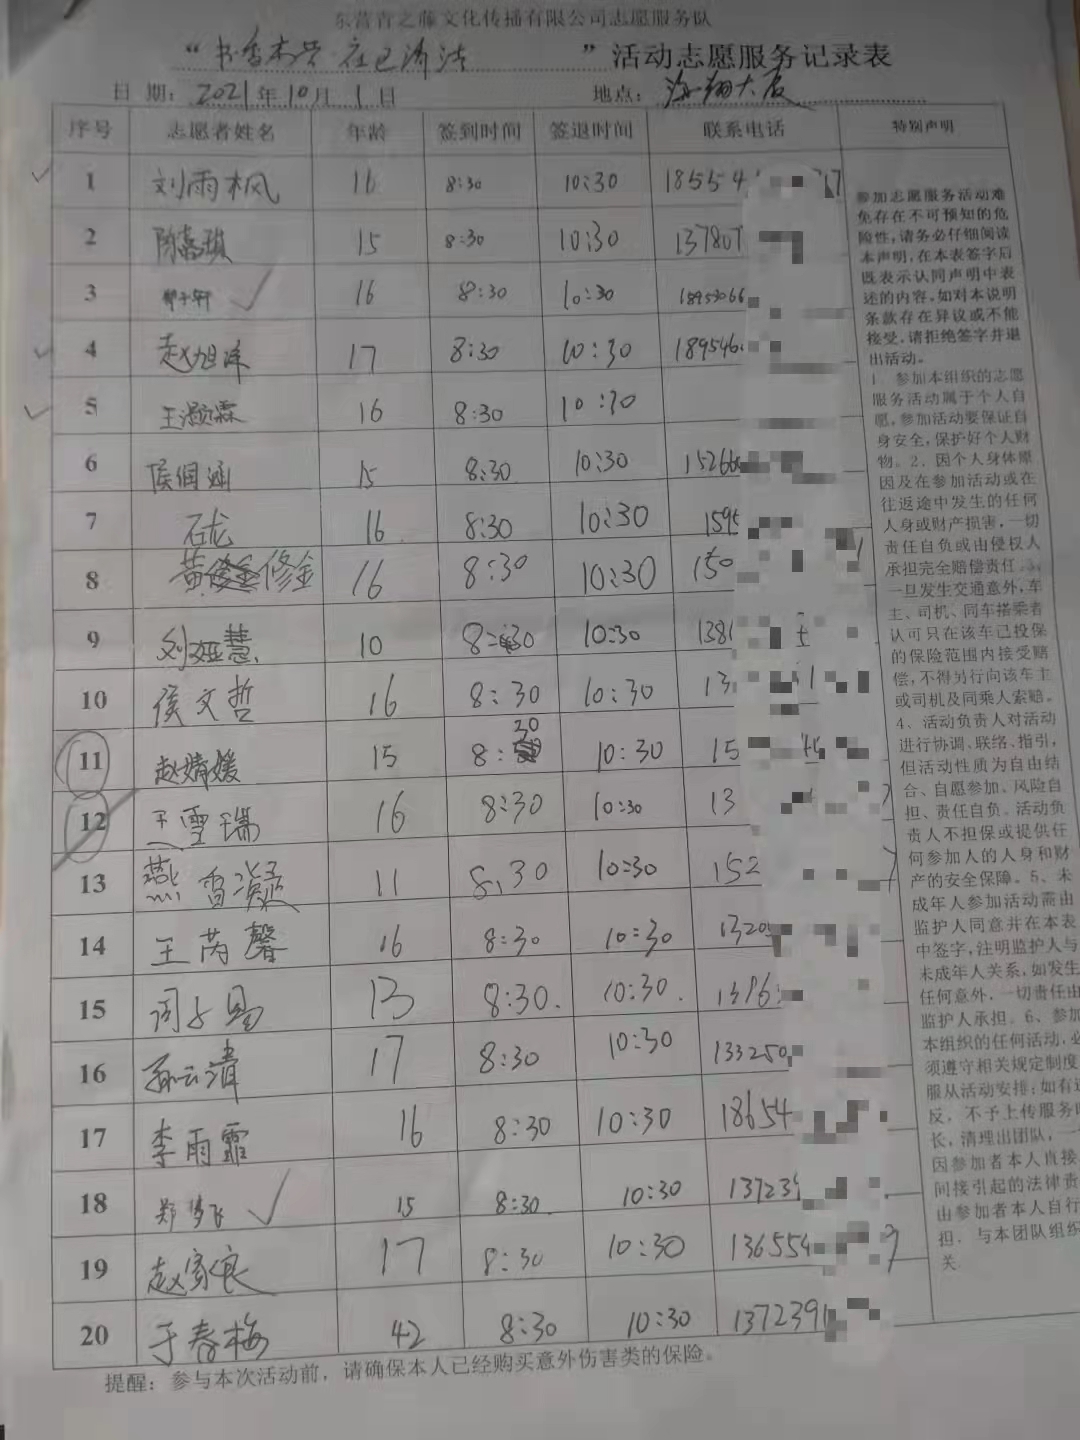 东营青之藤文化传播有限公司志愿服务队
“书香东营 在已清洁”活动志愿服务记录表
日 期：2021年10月1日 地点：海翔大厦
序号 志愿者姓名 年龄 签到时间 签退时间 联系电话 特别声明
1 刘雨枫 16 8:30 10:30 18554
2 陈嘉琪 15 8:30 10:30 137807
3 16 8:30 10:30 18953066
4 赵旭洋 17 8:30 10:30 189546
5 王灏霖 16 8:30 10:30
6 侯佃涵 15 8:30 10:30 15266
7 石龙 16 8:30 10:30 1595
8 黄修金 16 8:30 10:30 150
9 刘娅慧 10 8:30 10:30 138
10 侯文哲 16 8:30 10:30 13
11 赵婧媛 15 8:30 10:30 15
12 王雪瑞 16 8:30 10:30 13
13 燕雪凝 11 8:30 10:30 152
14 王芮馨 16 8:30 10:30 1320
15 周子易 13 8:30. 10:30. 1396
16 孙云清 17 8:30 10:30 133250
17 李雨霏 16 8:30 10:30 18654
18 郑梦飞 15 8:30. 10:30 13723
19 赵家良 17 8:30 10:30 136554
20 于春梅 42 8:30 10:30 1372391
参加志愿服务活动难
免存在不可预知的危
险性，请务必仔细阅读
本声明，在本表签字后
既表示认同声明中表
述的内容，如对本说明
条款存在异议或不能
接受，请拒绝签字并退
出活动。
1、参加本组织的志愿
服务活动属于个人自
愿，参加活动要保证自
身安全，保护好个人财
物。2、因个人身体原
因及在参加活动或在
往返途中发生的任何
人身或财产损害，一切
责任自负或由侵权人
承担完全赔偿责任。3、
一旦发生交通意外，车
主、司机、同车搭乘者
认可只在该车已投保
的保险范围内接受赔
偿，不得另行向该车主
或司机及同乘人索赔。
4、活动负责人对活动
进行协调、联络、指引，
但活动性质为自由结
合、自愿参加、风险自
担、责任自负。活动负
责人不担保或提供任
何参加人的人身和财
产的安全保障。5、未
成年人参加活动需由
监护人同意并在本表
中签字，注明监护人与
未成年人关系，如发生
任何意外，一切责任由
监护人承担。6、参加
本组织的任何活动，必
须遵守相关规定制度
服从活动安排；如有违
反，不予上传服务时
长，清理出团队，一
因参加者本人直接
间接引起的法律责
由参加者本人自行
担，与本团队组织
关
提醒：参与本次活动前，请确保本人已经购买意外伤害类的保险。